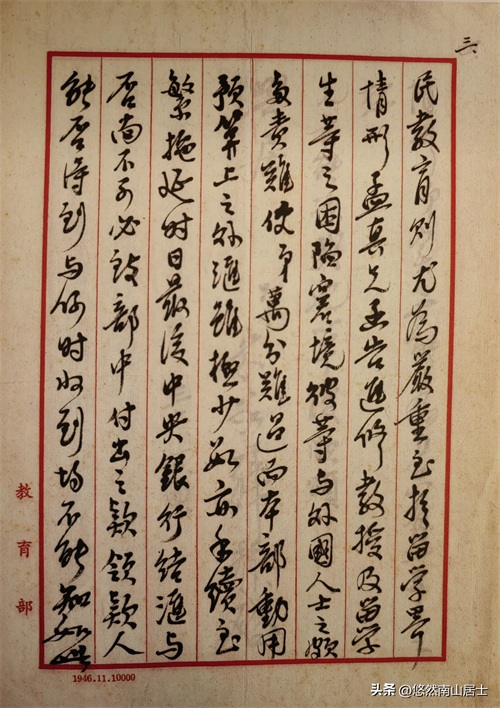 三
民教育则尤為嚴重至於留学界
情形孟真兄函告進修教授及留学
生等之困陷窘境彼等与外國人士之頗
多责難使弟萬分難過而本部動用
預算上之外滙雖極少數亦手續至
繁拖延时日最後中央銀行结滙与
否尚不可必致部中付出之款领款人
能否得到与何时收到均不能知如此
教育部
1946.11.10000
头条 @悠然南山居士